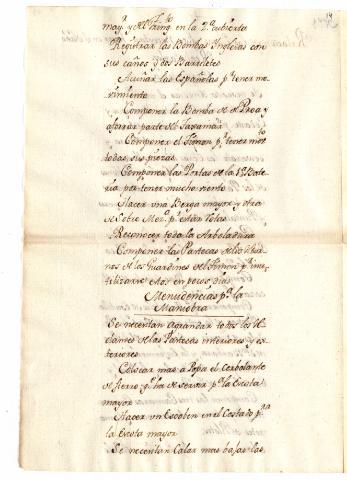 may.r y del Trinq.te en la 2.a cubierta
Registrar las Bombas Inglesas con
sus caños y dos Barriletes
Acuñar las Españolas p.r tener mo-
vimiento
Componer la Bomba de Proa y
aforrar parte del Tajamar
Componer el timon p.r tener mov.to
todas sus piezas
Componer las Portas de la 1.a Bate-
ria por tener mucho viento
Hacer una Berga mayor y otra
de Sobre Mez.a p.r estar
Reconocer toda la Arboladura
Componer las Partecas de
de los Guardines del Timon p.r inu-
tilizarse estos en pocos dias
Menudencias p.a la
Maniobra
Se necesitan agrandar todos los
de las Partecas interiores y ex-
teriores
Colocar mas a Popa el
de fierro q.e ha de servir p.a la Escota
mayor
Hacer un Escoben en el Costado p.a
la Escota mayor
Se necesitan Calar mas bajas las